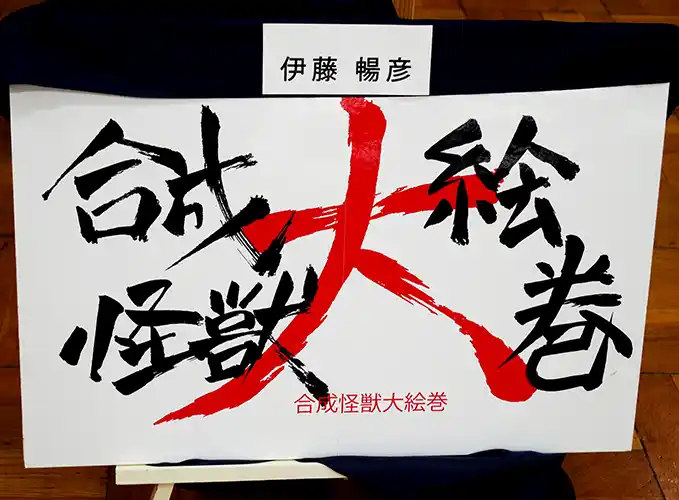 伊藤 暢彦
合成
怪獣
大
絵
巻
合成怪獣大絵巻